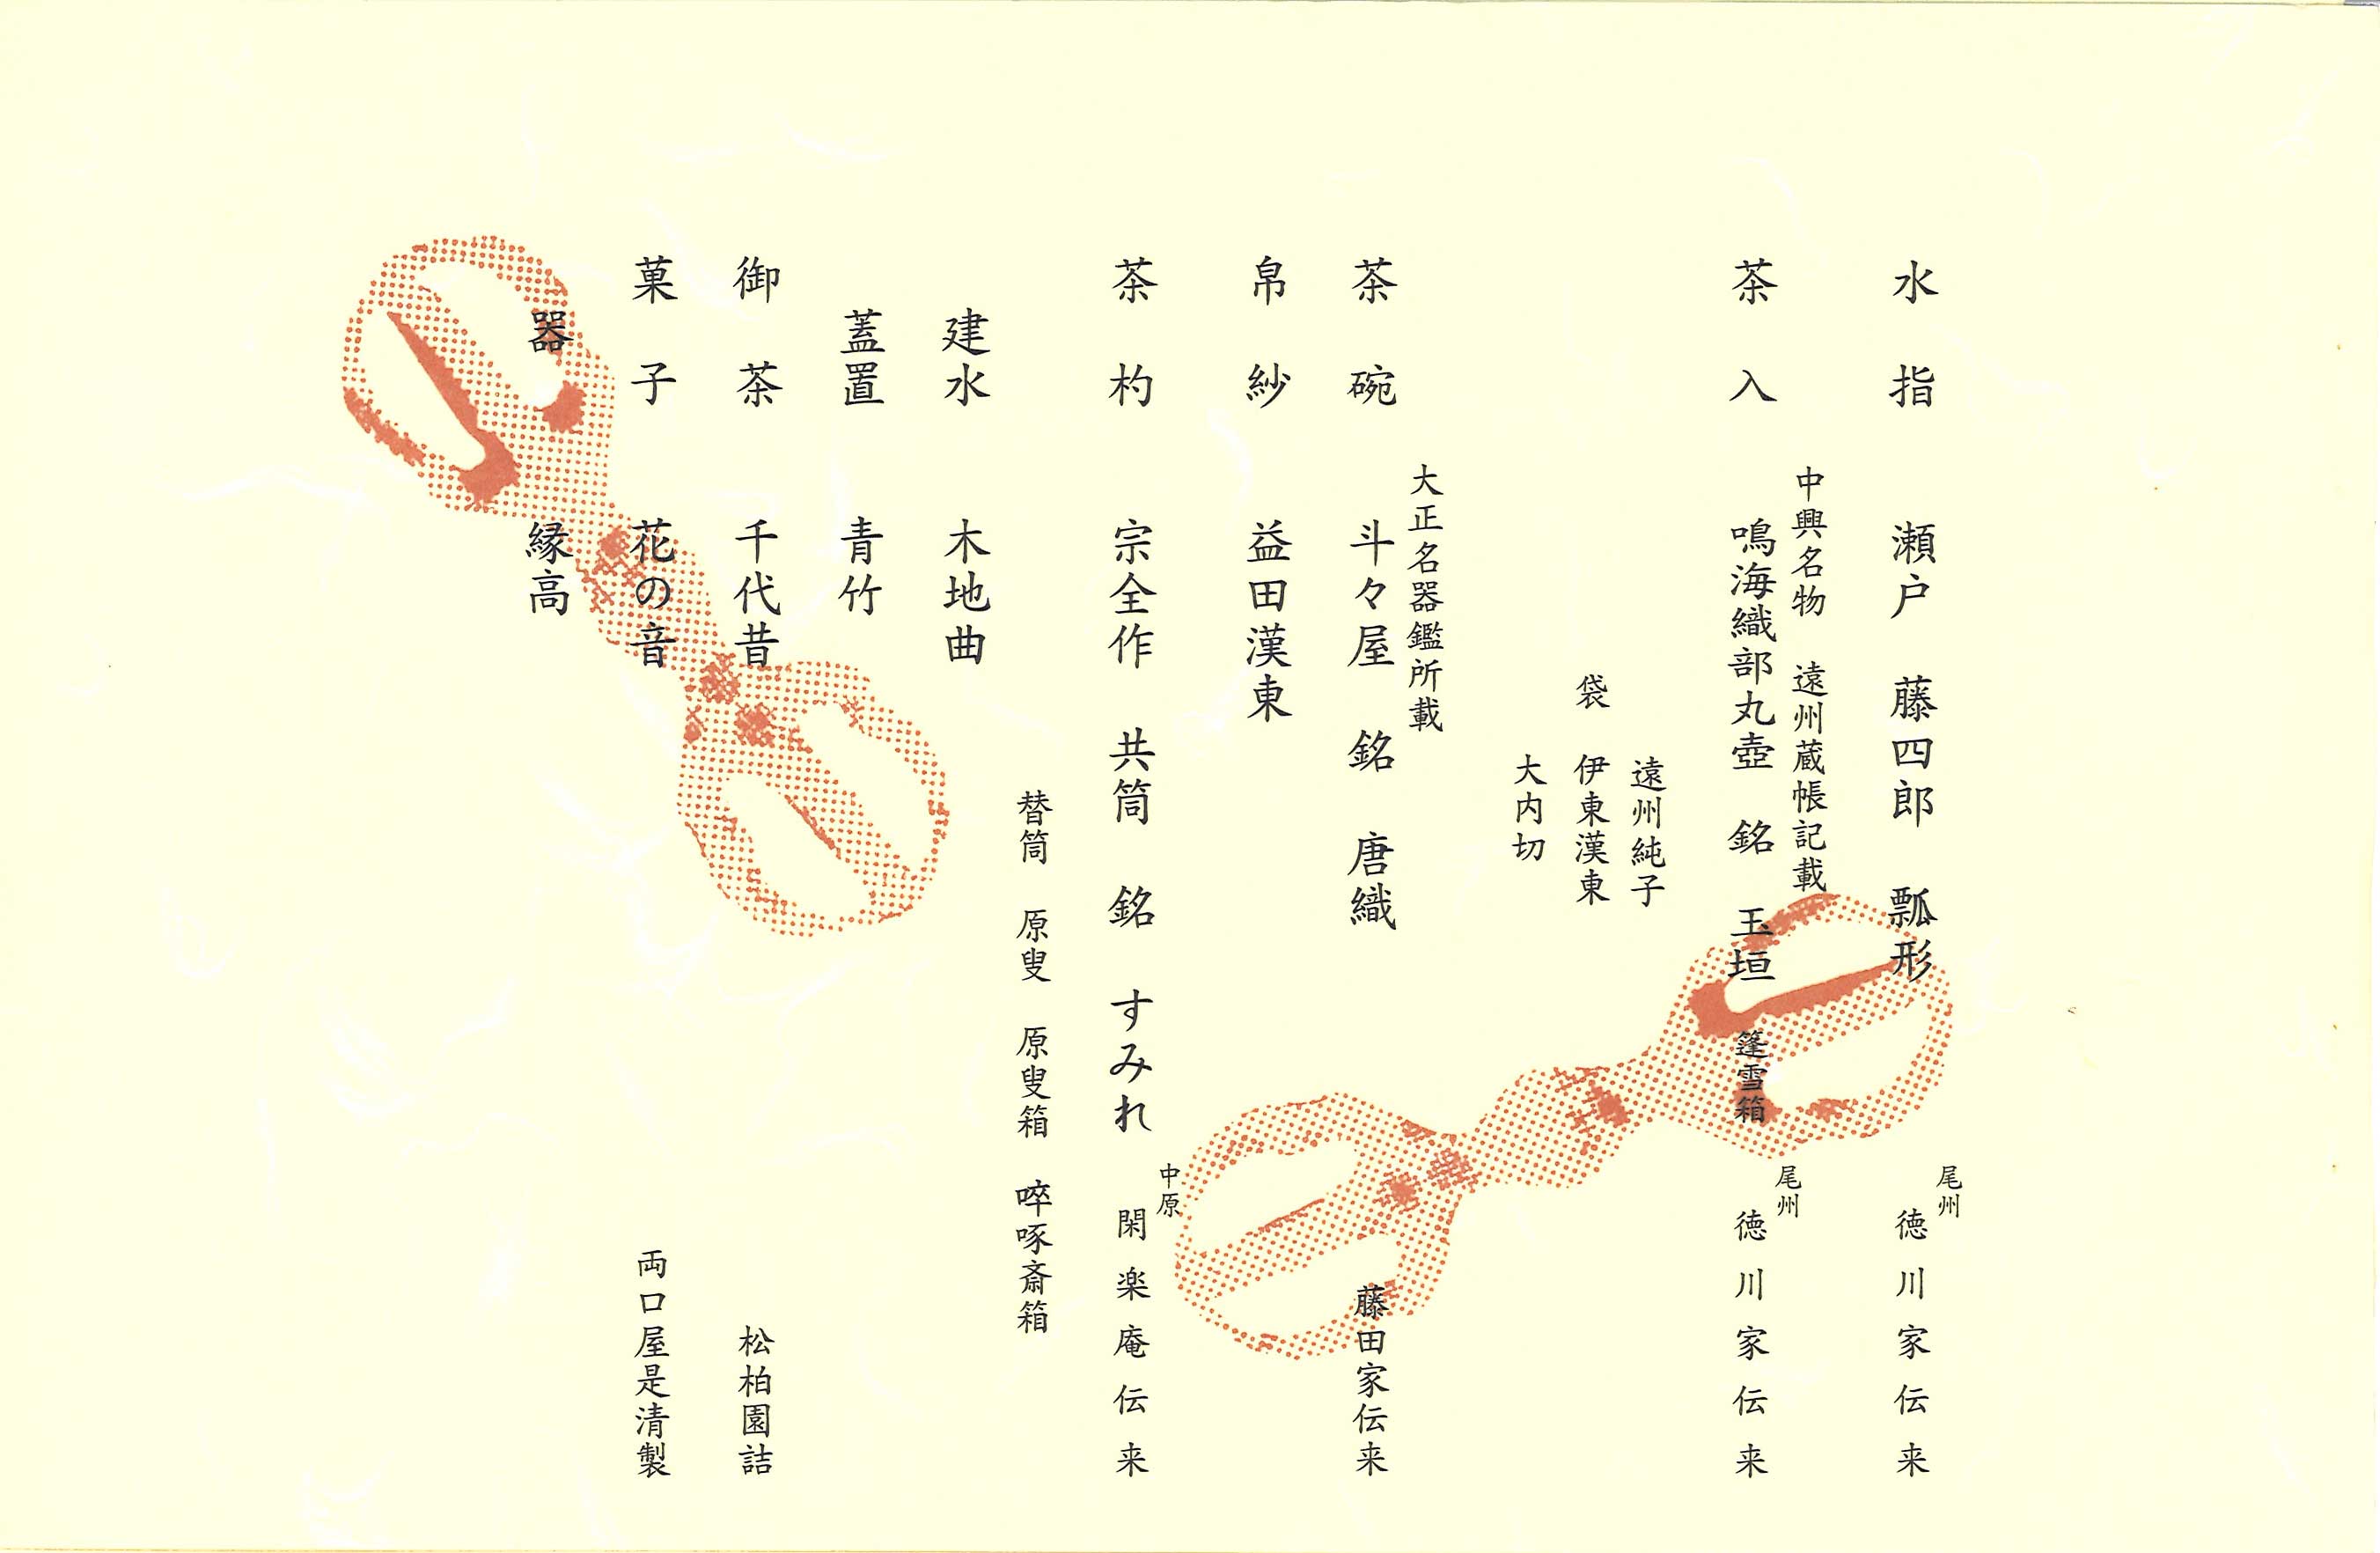 水指 瀬戸 藤四郎 瓢形 尾州 徳川家伝来
中興名物 遠州蔵帳記載
茶入 鳴海織部丸壺 銘 玉垣 篷雪箱 尾州 徳川家伝来
遠州純子
袋 伊東漢東
大内切
大正名器鑑所載
茶碗 斗々屋 銘 唐織 藤田家伝来
帛紗 益田漢東
茶杓 宗全作 共筒 銘 すみれ 中原 閑楽庵伝来
替筒 原叟 原叟箱 啐啄斎箱
建水 木地曲
蓋置 青竹
御茶 千代昔 松柏園詰
菓子 花の音 両口屋是清製
器 縁高